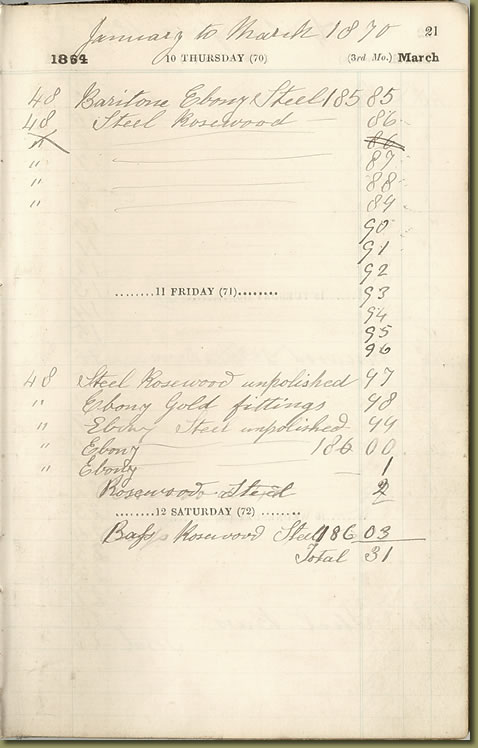 January to March 1870 21
1864 10 THURSDAY (70) (3rd. Mo.) March
48 Baritone Ebony Steel 185 85
48 Steel Rosewood 86
" 86
" 87
" 88
" 89
90
91
92
11 FRIDAY (71) 93
94
95
96
48 Steel Rosewood unpolished 97
" Ebony Gold fittings 98
" Ebony Steel unpolished 99
" Ebony 186 00
" Ebony 1
Rosewood Steel 2
12 SATURDAY (72)
Bass Rosewood Steel 186 03
Total 31